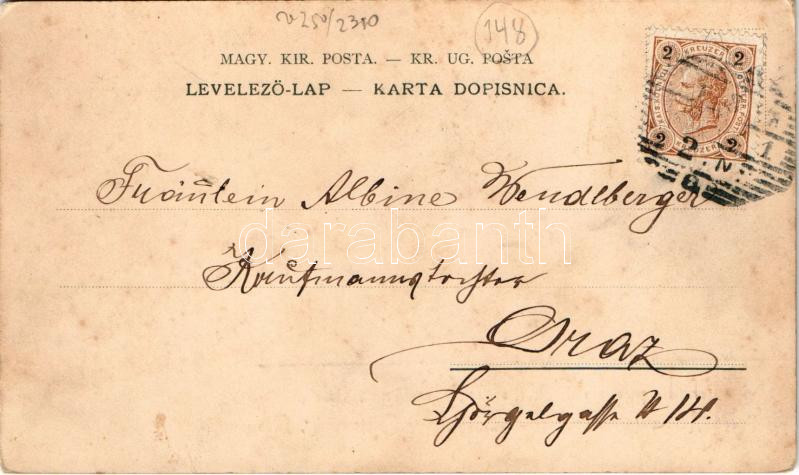 v 250/2310
148
MAGY. KIR. POSTA. — KR. UG. POŠTA
LEVELEZŐ-LAP — KARTA DOPISNICA.
2 KREUZER 2
2 KREUZER 2
Fräulein Albine Wendlberger
darabanth
Kaufmannstochter
Graz